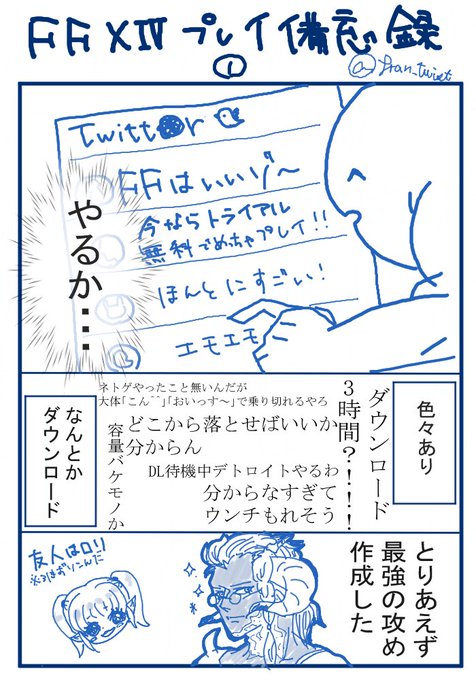 FFXIV プレイ備忘録
①
@fran_twist
Twitter
FFはいいゾ〜
今ならトライアル
無料でめちゃプレイ!!
ほんとにすごい!
エモエモ
やるか…
色々あり
ダウンロード
3時間?!!!
ネトゲやったこと無いんだが
大体「こん^^」「おいっす〜」で乗り切れるやろ
どこから落とせばいいか
分からん
DL待機中デトロイトやるわ
分からなすぎて
ウンチもれそう
容量バケモノか
なんとか
ダウンロード
とりあえず
最強の攻め
作成した
友人はロリ